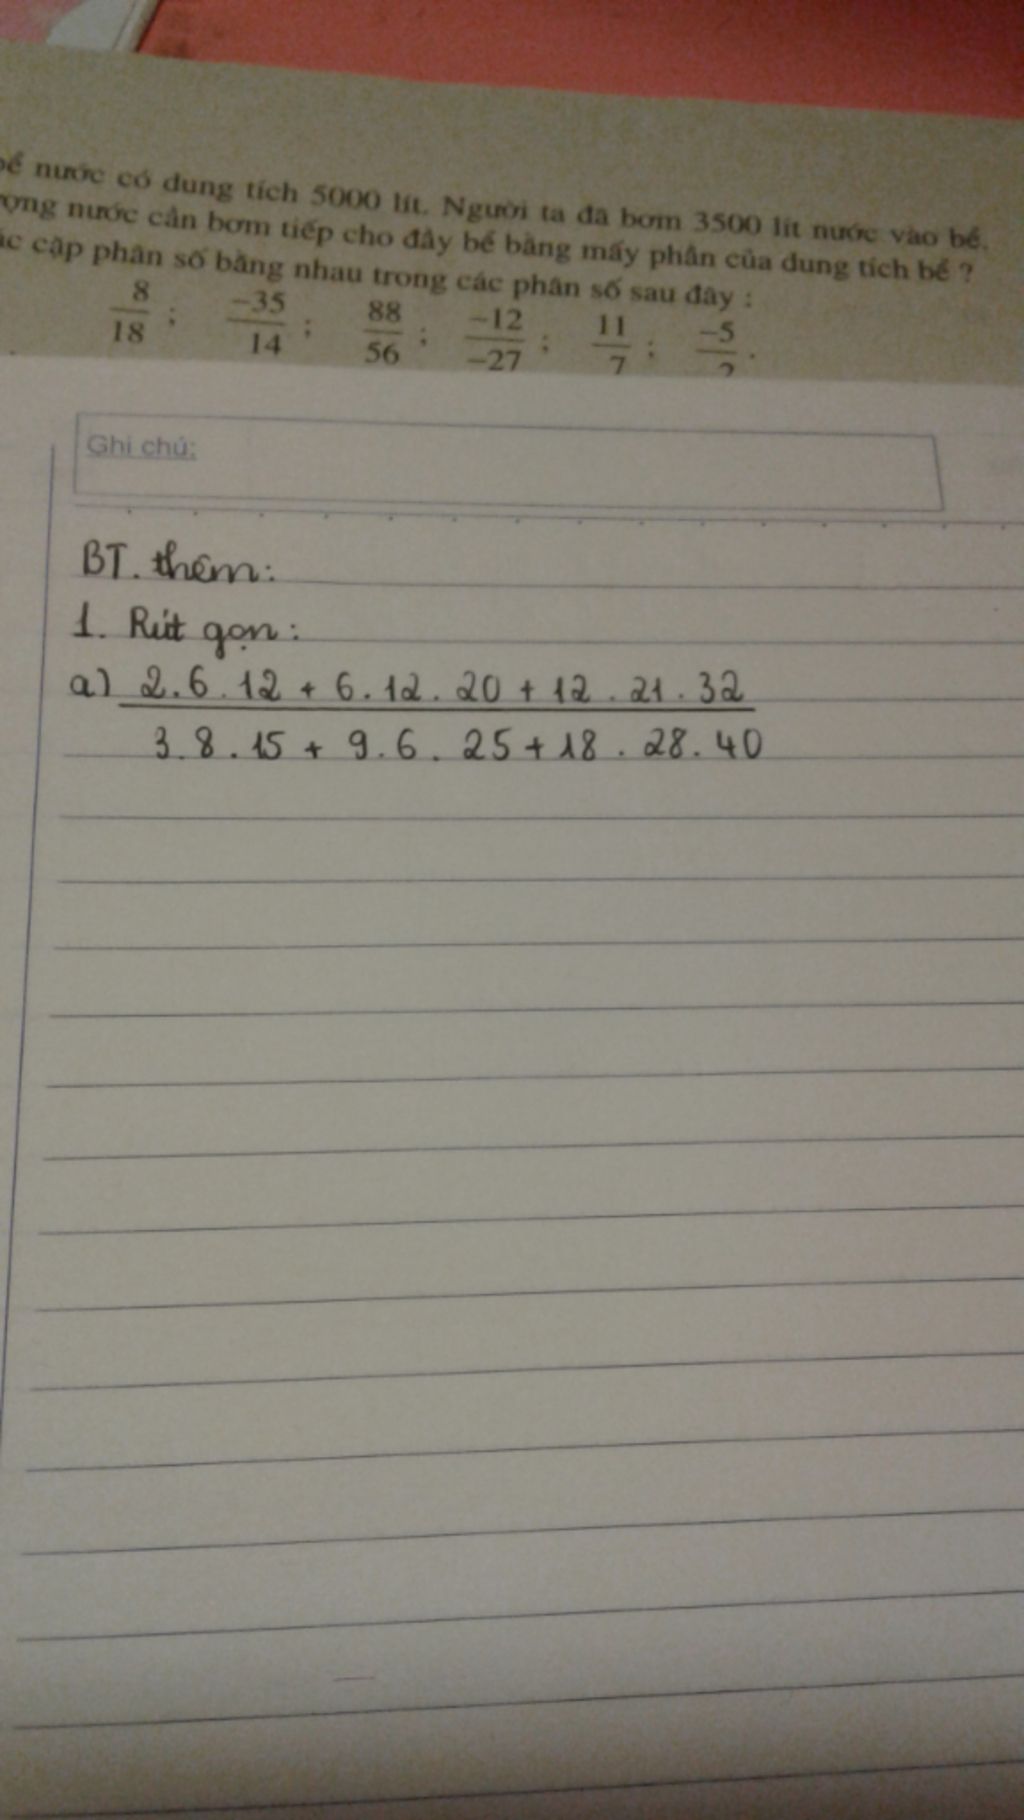 bể nước có dung tích 5000 lít. Người ta đã bơm 3500 lít nước vào bể.
ượng nước cần bơm tiếp cho đầy bể bằng mấy phần của dung tích bể ?
ác cặp phân số bằng nhau trong các phân số sau đây :
8/18 ; -35/14 ; 88/56 ; -12/-27 ; 11/7 ; -5/2 .
Ghi chú:
BT. thêm:
1. Rút gọn:
a) 2.6.12 + 6.12.20 + 12.21.32
3.8.15 + 9.6.25 + 18.28.40